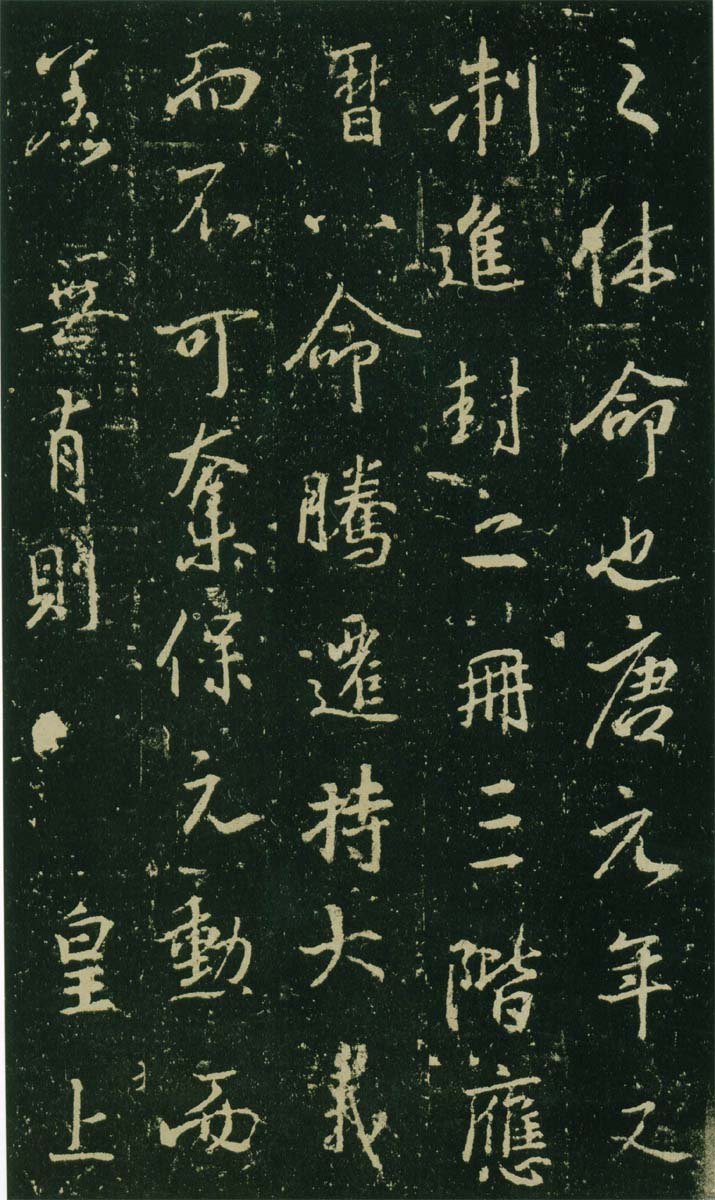 之休命也唐元年又
制進封二冊三階應
曆八命騰遷持大義
而不可奪保元勳而
無有則 皇上